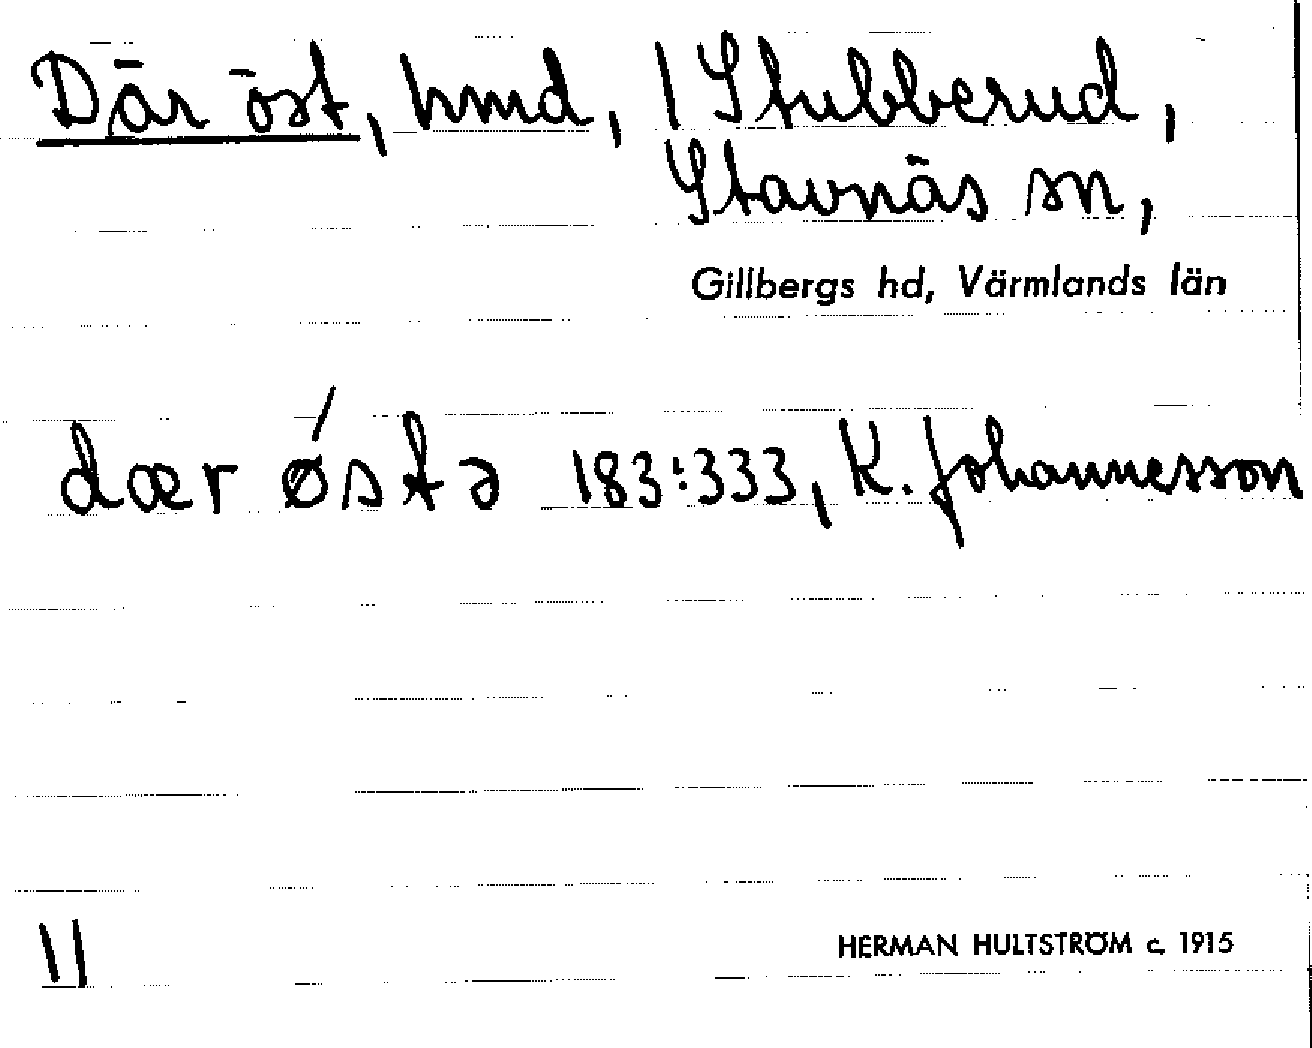 Där öst, hmd, 1 Stubberud,
Stavnäs sn,
Gillbergs hd, Värmlands län
dær ǿstə 183:333, K. Johannesson
11
HERMAN HULTSTRÖM c. 1915